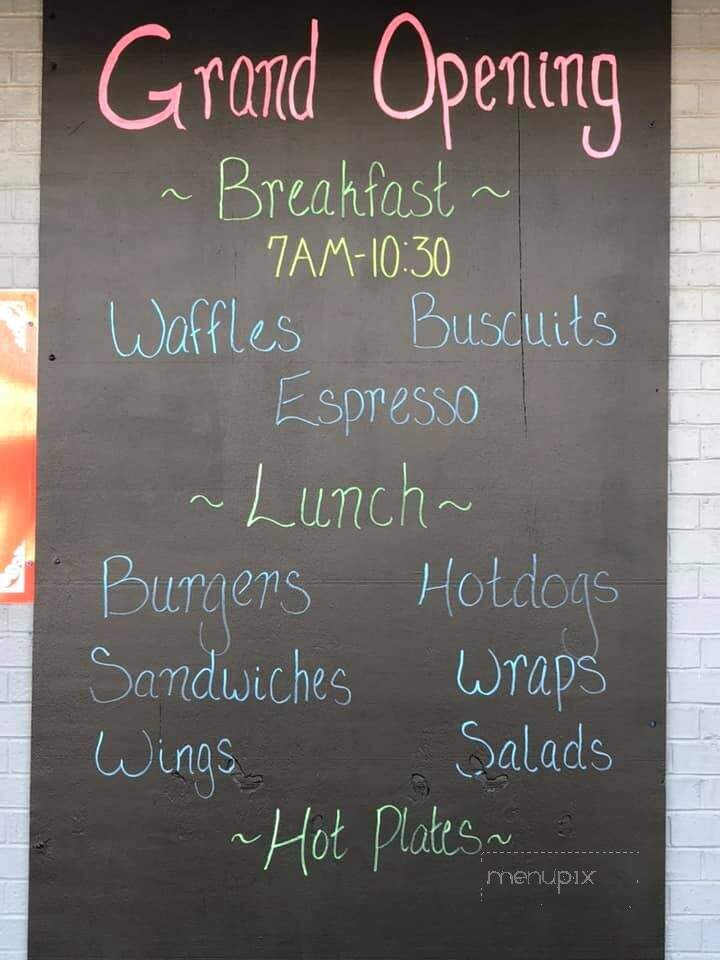 Grand Opening
~ Breakfast ~
7AM-10:30
Waffles Buscuits
Espresso
~ Lunch ~
Burgers Hotdogs
Sandwiches Wraps
Wings Salads
~ Hot Plates ~
menupix